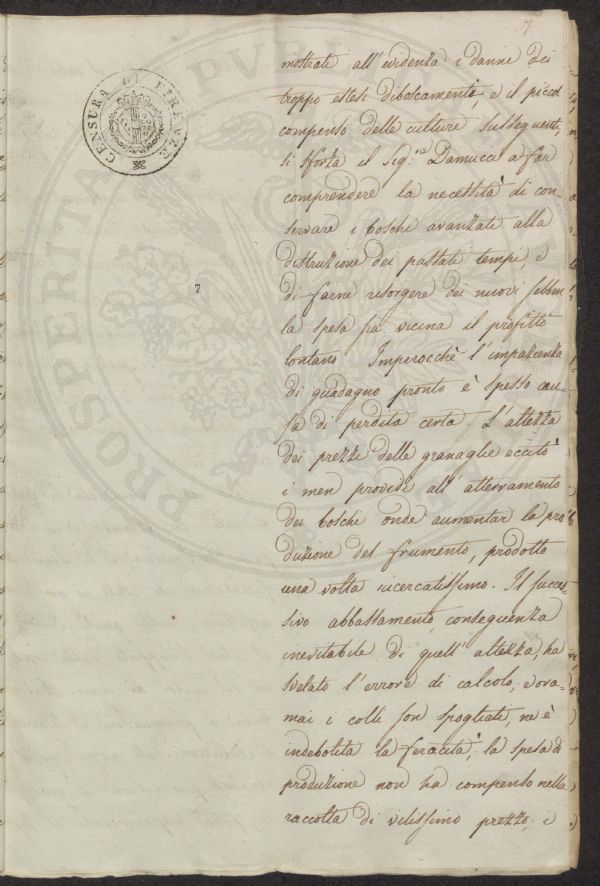 7
CENSURA DI FIRENZE
PROSPERITÀ PVBLICA
7
mostrate all'evidenza i danni dei
troppo estesi diboscamenti, e il piccol
compenso delle culture susseguenti,
si sforza il Sig.re Damucci a far
comprendere la necessità di con-
servare i boschi avanzati alla
distruzione dei passati tempi, e
di farne risorgere dei nuovi sebben
la spesa sia vicina il profitto
lontano Imperocchè l'impazienza
di guadagno pronto è spesso cau-
sa di perdita certa. L'altezza
dei prezzi delle granaglie eccitò
i men providi all'atterramento
dei boschi onde aumentar la pro
duzione del frumento, prodotto
una volta ricercatissimo. Il succes-
sivo abbassamento, conseguenza
inevitabile di quell'altezza, ha
svelato l'errore di calcolo, e ora-
mai i colli son spogliati, ne è
indebolita la feracità; la spesa di
produzione non ha compenso nella
raccolta di vilissimo prezzo, i